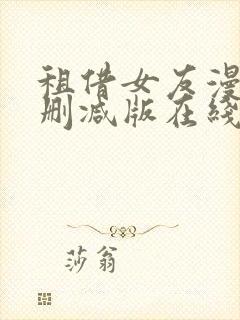 租借女友漫
删减版在线
莎翁